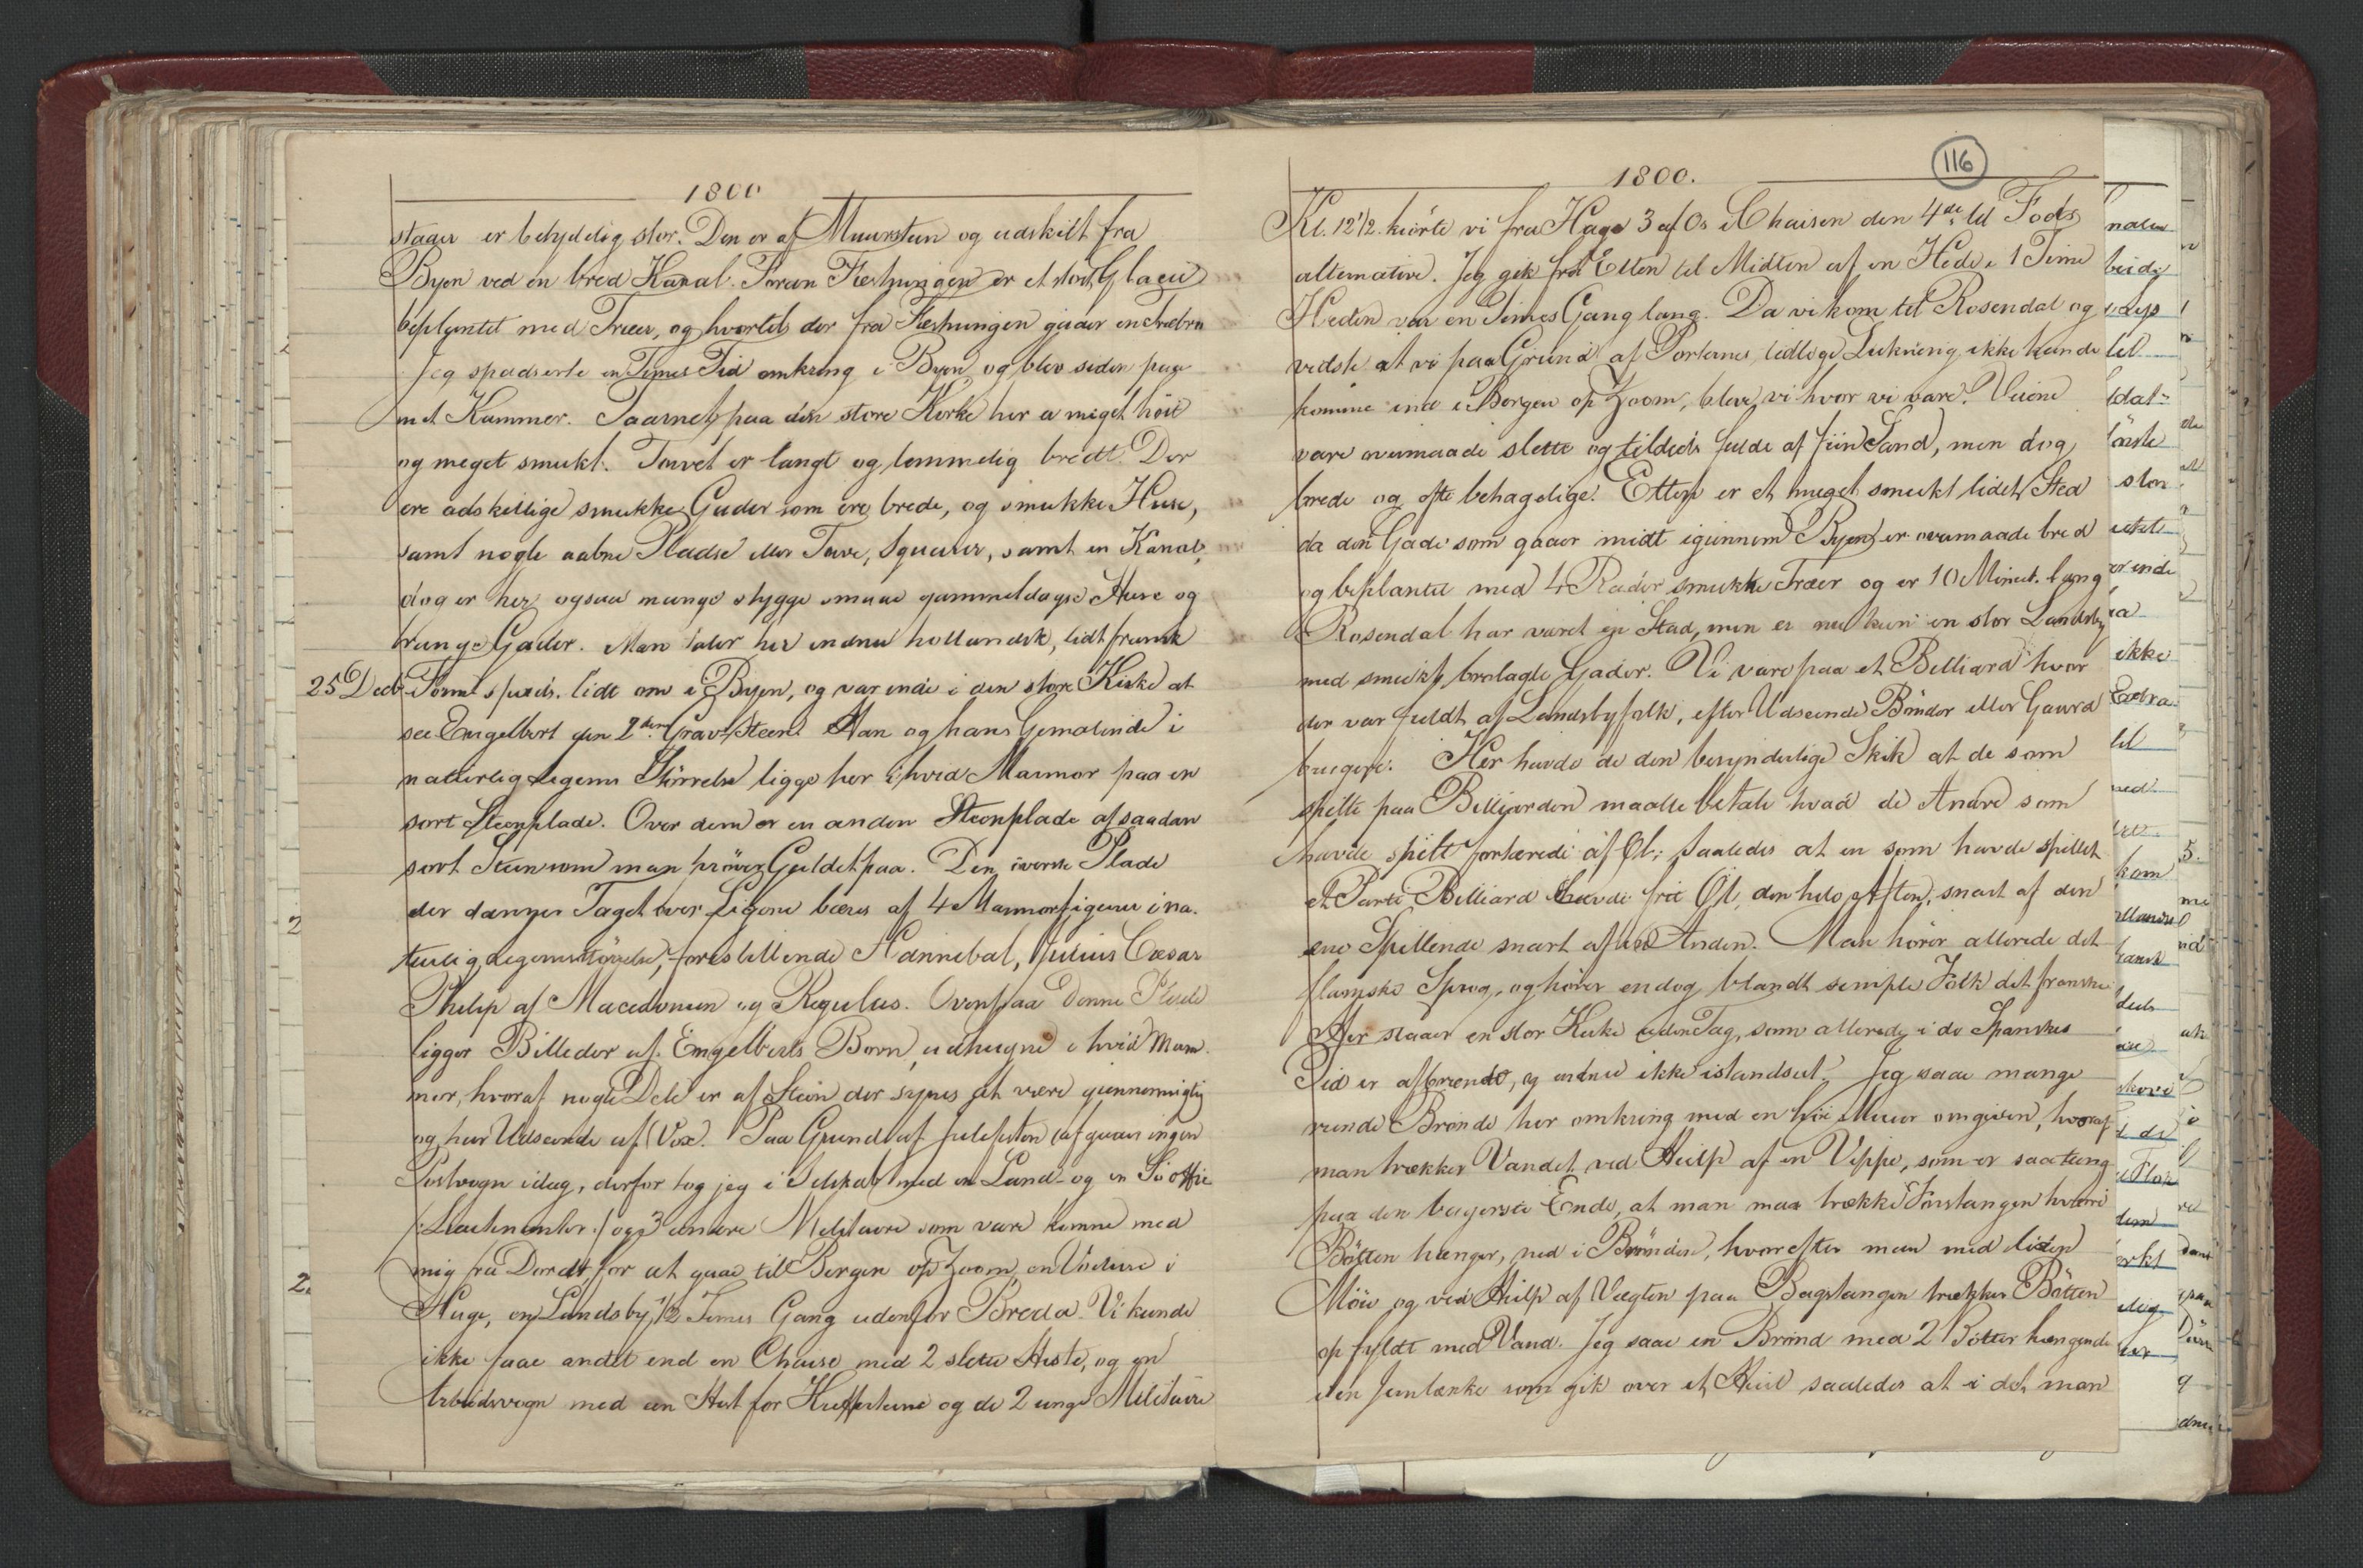 1800
staaer er betydelig stor. Den er af Muursteen og adskilt fra
Byen ved en bred Kanal. Foran Fæstningen er et stort Glacis
beplantet med Træer, og hvortil der fra Fæstningen gaaer en Træbro
Jeg spadserte en Times Tid omkring i Byen og blev siden paa
mit Kammer. Taarnet paa den store Kirke her er meget höit
og meget smukt. Torvet er langt og temmelig bredt. Der
ere adskillige smukke Gader som ere brede, og smukke Huse,
samt nogle aabne Pladse eller Torve, Squarer, samt en Kanal,
dog er her ogsaa mange stygge smaae gammeldagse Huse og
trange Gader. Man taler her endnu hollandsk, lidt fransk
25 Decb Form. spads. lidt om i Byen, og var inde i den store Kirke at
see Engelbert den 2den Grav Steen. Han og hans Gemalinde i
naturlig Legems Störrelse ligge her i hvid Marmor paa en
sort Steenplade. Over dem er en anden Steenplade af saadan
sort Steen som man pröver Guldet paa. Den överste Plade
der danner Taget over Ligene bæres af 4 Marmorfigurer i na-
turlig Legemsstörrelse, forestillende Hannibal, Julius Cæsar
Philip af Macedonien og Regulus. Ovenpaa denne Plade
ligger Billeder af Engelberts Börn, udhugne i hvid Mar-
mor, hvoraf nogle Dele er af Steen der synes at være giennemsigtig
og har Udseende af Vox. Paa Grund af Julefesten afgaaer ingen
Postvogn idag, derfor tog jeg i Selskab med en Land- og en Söoffic
/:Lieutenanter:/ og 3 andre Militaire som vare komne med
mig fra Dordt, for at gaae til Bergen op Zoom, en Voiture i
Hage, en Landsby 1/2 Times Gang udenfor Breda. Vi kunde
ikke faae andet end en Chaise med 2 slette Heste, og en
Arbeidsvogn med een Hest for Kufferterne og de 2 unge Militaire
116
1800.
Kl. 12 1/2 kiörte vi fra Hage 3 af Os i Chaisen den 4de til Fods
alternative. Jeg gik fra Etten til Midten af en Hede i 1 Time
Heden var en Times Gang lang. Da vi kom til Rosendal og
vidste at vi paa Grund af Portenes tidlige Lukning ikke kunde
komme ind i Bergen op Zoom, bleve vi hvor vi vare. Veiene
vare overmaade slette og tildeels fulde af fiin Sand, men dog
brede og ofte behagelige. Etten er et meget smukt lidet Sted
da den Gade som gaaer midt igiennem Byen er overmaade bred
og beplantet med 4 Rader smukke Træer og er 10 Minut. lang
Rosendal har været en Stad, men er nu kun en stor Landsby
med smukt brolagte Gader. Vi vare paa et Billiard hvor
der var fuldt af Landsbyfolk, efter Udseende Bönder eller Gaard
brugere. Her havde de den besynderlige Skik at de som
spilte paa Billiarden maatte betale hvad de Andre som
havde spilt fortærede af Öl; saaledes at en som havde spillet
et Parti Billiard havde frit Öl, den hele Aften, snart af den
ene Spillende snart af den Anden. Man hörer allerede det
flamske Sprog, og hörer endog blandt simple Folk det franske
Her staaer en stor Kirke uden Tag, som allerede i de Spanskes
Tid er afbrændt, og endnu ikke istandsat. Jeg saae mange
runde Brönde her omkring med en höi Muur omgiven, hvoraf
man trækker Vandet ved Hielp af en Vippe, som er saa tung
paa den bagerste Ende, at man maa trække Forstangen hvori
Bötten hænger, ned i Brönden, hvorefter man med liden
Möie og ved Hielp af Vægten paa Bagstangen trækker Bötten
op fyldt med Vand. Jeg saae en Brönd med 2 Bötter hængende
i en Jernlænke som gik over et Hiul saaledes at i det man